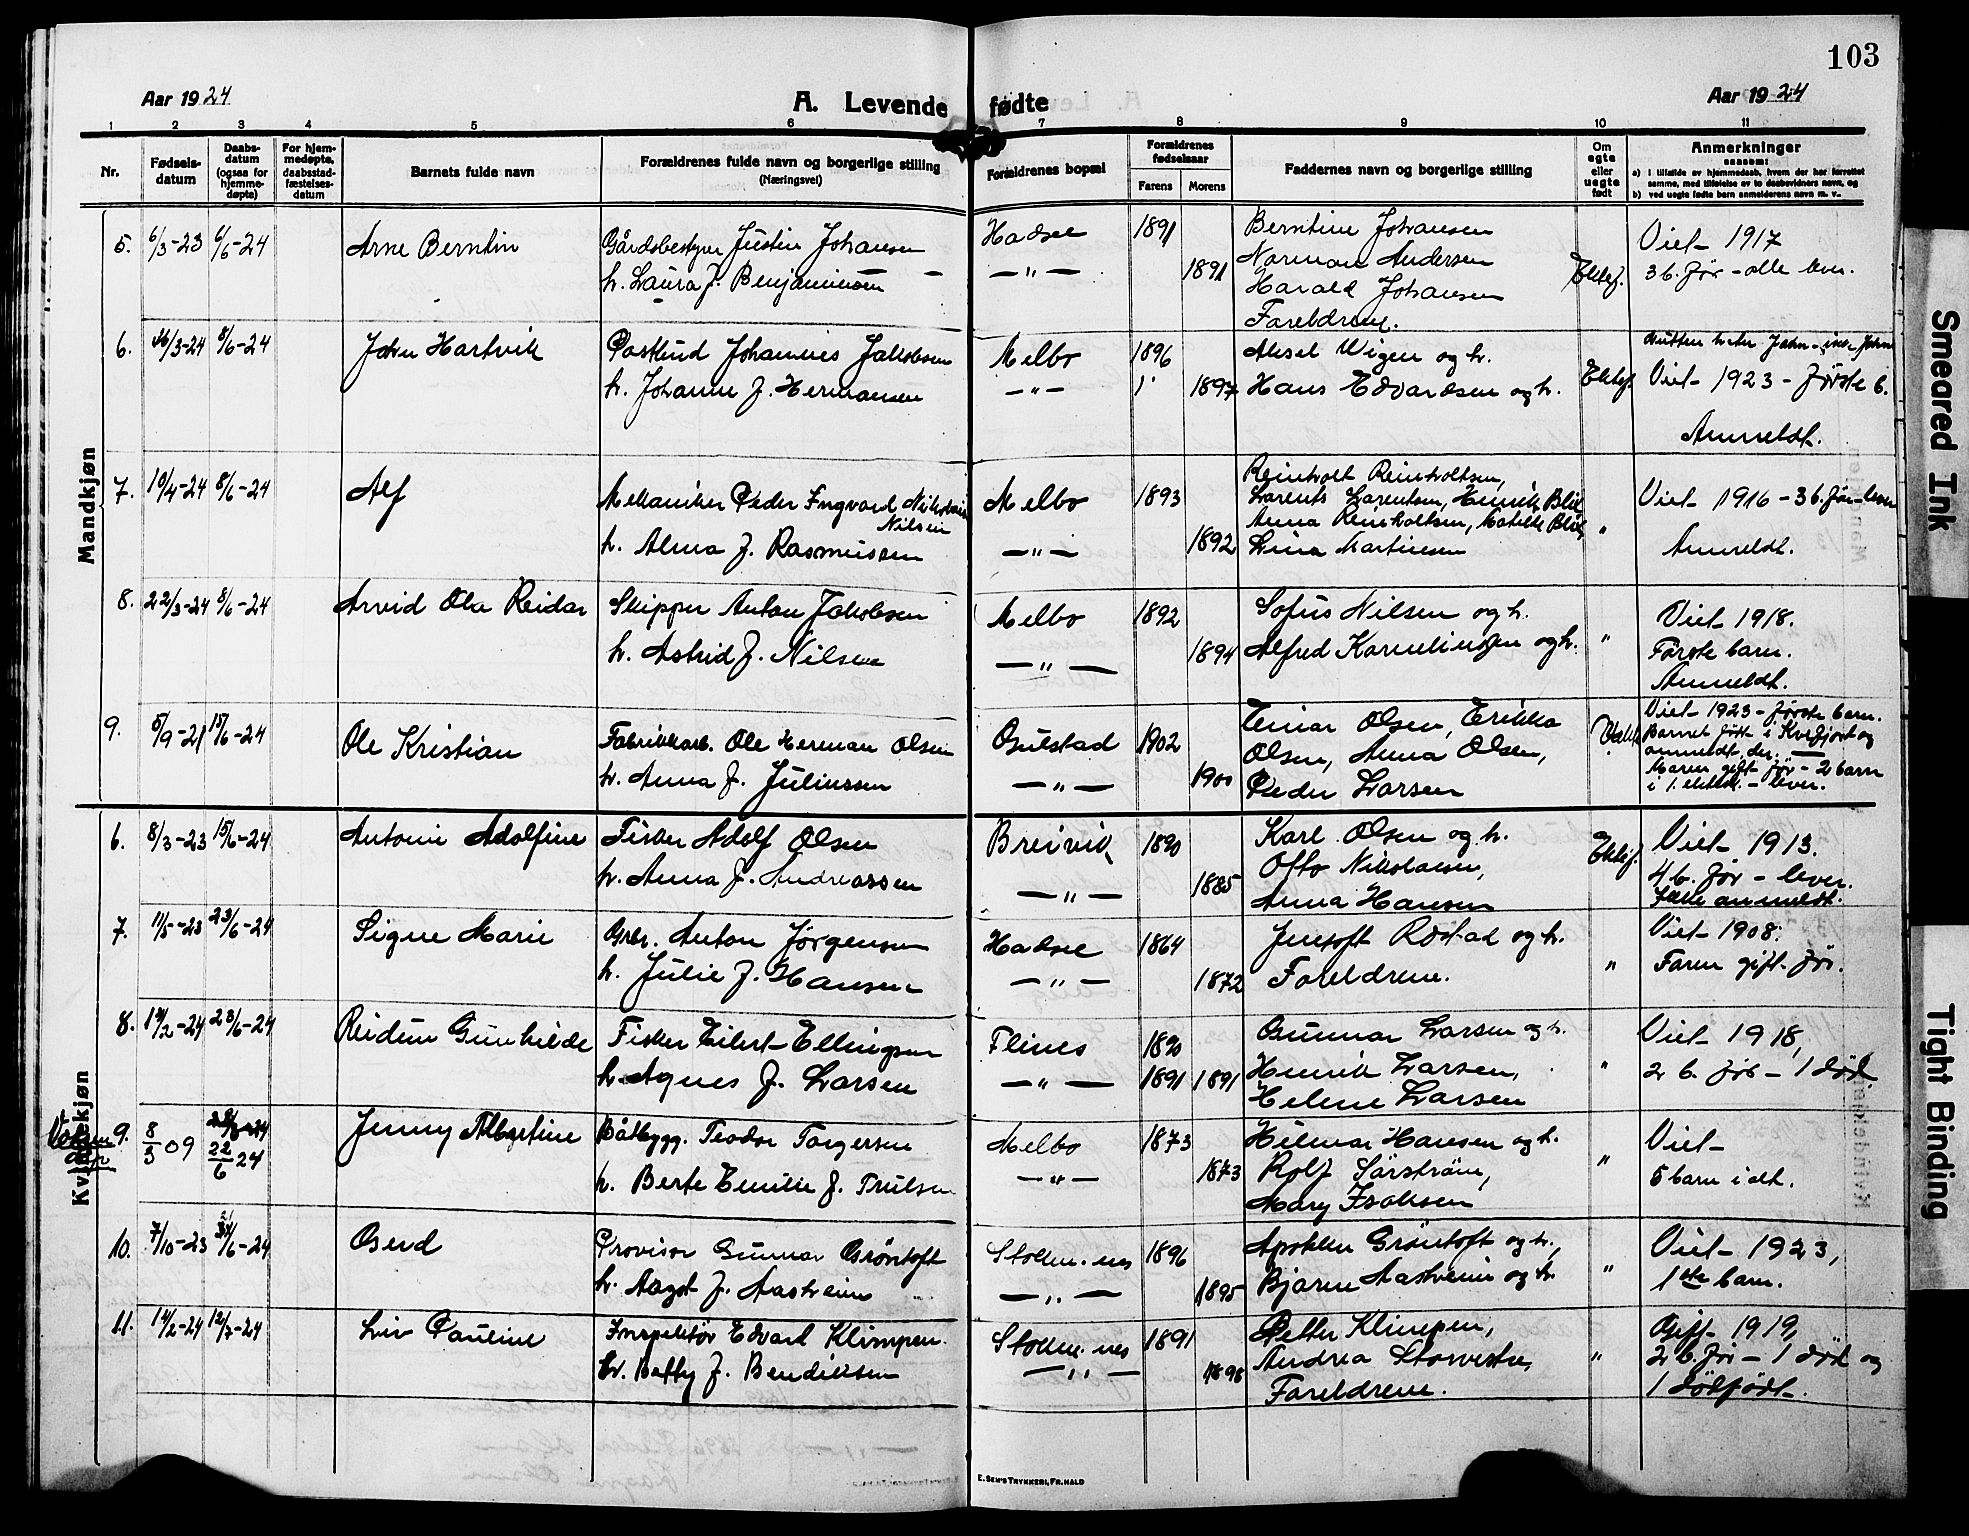 103
Aar 1924
A. Levende fødte
Aar 1924
1 2 3 4 5 6 7 8 9 10 11
Nr.
Fødsels-
datum
Daabs-
datum
(ogsaa for
hjemme-
døpte)
For hjem-
medøpte,
daabsstad-
fæstelses-
datum
Barnets fulde navn
Forældrenes fulde navn og borgerlige stilling
(Næringsvei)
Forældrenes bopæl
Forældrenes
fødselsaar
Farens Morens
Faddernes navn og borgerlige stilling
Om
egte
eller
uegte
født
Anmerkninger
saasom:
a) i tilfælde av hjemmedaab, hvem der har forrettet
samme, med tilføielse av to daabsvidners navn, og
b) ved uegte fødte barn anmelderens navn m. v..
Mandkjøn
5. 6/3-23 6/6-24 Arne Berntin
Gårdsbestyrer Justin Johansen
h. Laura f. Benjaminsen
Hadsel 1891
—"— 1891
Berntine Johansen
Norman Andersen
Harald Johansen
Foreldrene.
Ektef.
Viet 1917
3 b. før - alle lever.
6. 16/3-24 8/6-24 John Hartvik
Postbud Johannes Jakobsen
h. Johanne f. Hermansen
Melbo 1896
—"— 1897
Aksel Wigen og h.
Hans Edvardsen og h.
Ektef.
Viet 1923 - første b.
Anmeldt.
7. 10/4-24 8/6-24 Alf
Mekaniker Peder Ingvard Nikolai
Nilsen
h. Alma f. Rasmussen
Melbo 1893
—"— 1892
Reinholt Reinholtsen,
Lorents Lorentsen, Henrik Blix
Anna Reinholtsen, Matilde Blix,
Lina Martinsen
"
Viet 1916 - 3 b. før - lever
Anmeldt.
8. 22/3-24 8/6-24 Arvid Ola Reidar
Skipper Anton Jakobsen
h. Astrid f. Nilsen
Melbo 1892
—"— 1894
Sofus Nilsen og h.
Alfred Korneliussen og h.
"
Viet 1918.
Første barn.
Anmeldt.
9. 5/9-21 15/6-24 Ole Kristian
Fabrikkarb. Ole Herman Olsen
h. Anna f. Juliussen
Gulstad 1902
—"— 1900
Einar Olsen, Erikka
Olsen, Anna Olsen,
Peder Larsen
Viet 1923 - første barn.
Barnet født i Kvæfjord og
anmeldt der. —
Moren gift før - 2 barn
i 1. ektesk. - lever.
Kvindekjøn
6. 8/3-23 15/6-24 Antonie Adolfine
Fisker Adolf Olsen
h. Anna f. Andreassen
Breivik 1890
—"— 1885
Karl Olsen og h.
Otto Nikolaisen,
Anna Hansen
Ektef.
Viet 1913.
4 b. før - lever.
Ikke anmeldt.
7. 11/5-23 23/6-24 Signe Marie
Grbr. Anton Jørgensen
h. Julie f. Hansen
Hadsel 1864
—"— 1872
Jentoft Rostad og h.
Foreldrene.
"
Viet 1908.
Faren gift før.
8. 19/2-24 23/6-24 Reidun Gunhilde
Fisker Eilert Ellingsen
h. Agnes f. Larsen
Flines 1890
—"— 1891 1891
Gunnar Larsen og h.
Henrik Larsen,
Helene Larsen
"
Viet 1918,
2 b. før - 1 død.
Voksen
9. 8/3 09 22/6 24 Jenny Albertine
Båtbygg. Teodor Torgersen
h. Berte Emilie f. Trulsen
Melbo 1873
—"— 1873
Hilmar Hansen og h.
Rolf Sørstrøm,
Mary Isaksen
"
Viet
5 barn i alt.
10. 7/10-23 /6-24 Gerd
Provisor Gunnar Grøntoft
h. Aagot f. Aasheim
Stokm.nes 1896
—"— 1895
Apotkr Grøntoft og h.
Bjarne Aasheim og h.
"
Viet 1923,
1ste barn.
11. 14/2-24 12/7-24 Liv Pauline
Inspektør Edvart Klimpen.
h. Batty f. Bendiksen
Stokm.nes 1891
—"— 1898
Petter Klimpen,
Andrea Storvestre,
Foreldrene.
"
Gift 1919,
2 b. før - 1 død og
1 dødfødt.
E. Sem's Trykkeri, Fr.hald
Smeared Ink
Tight Binding